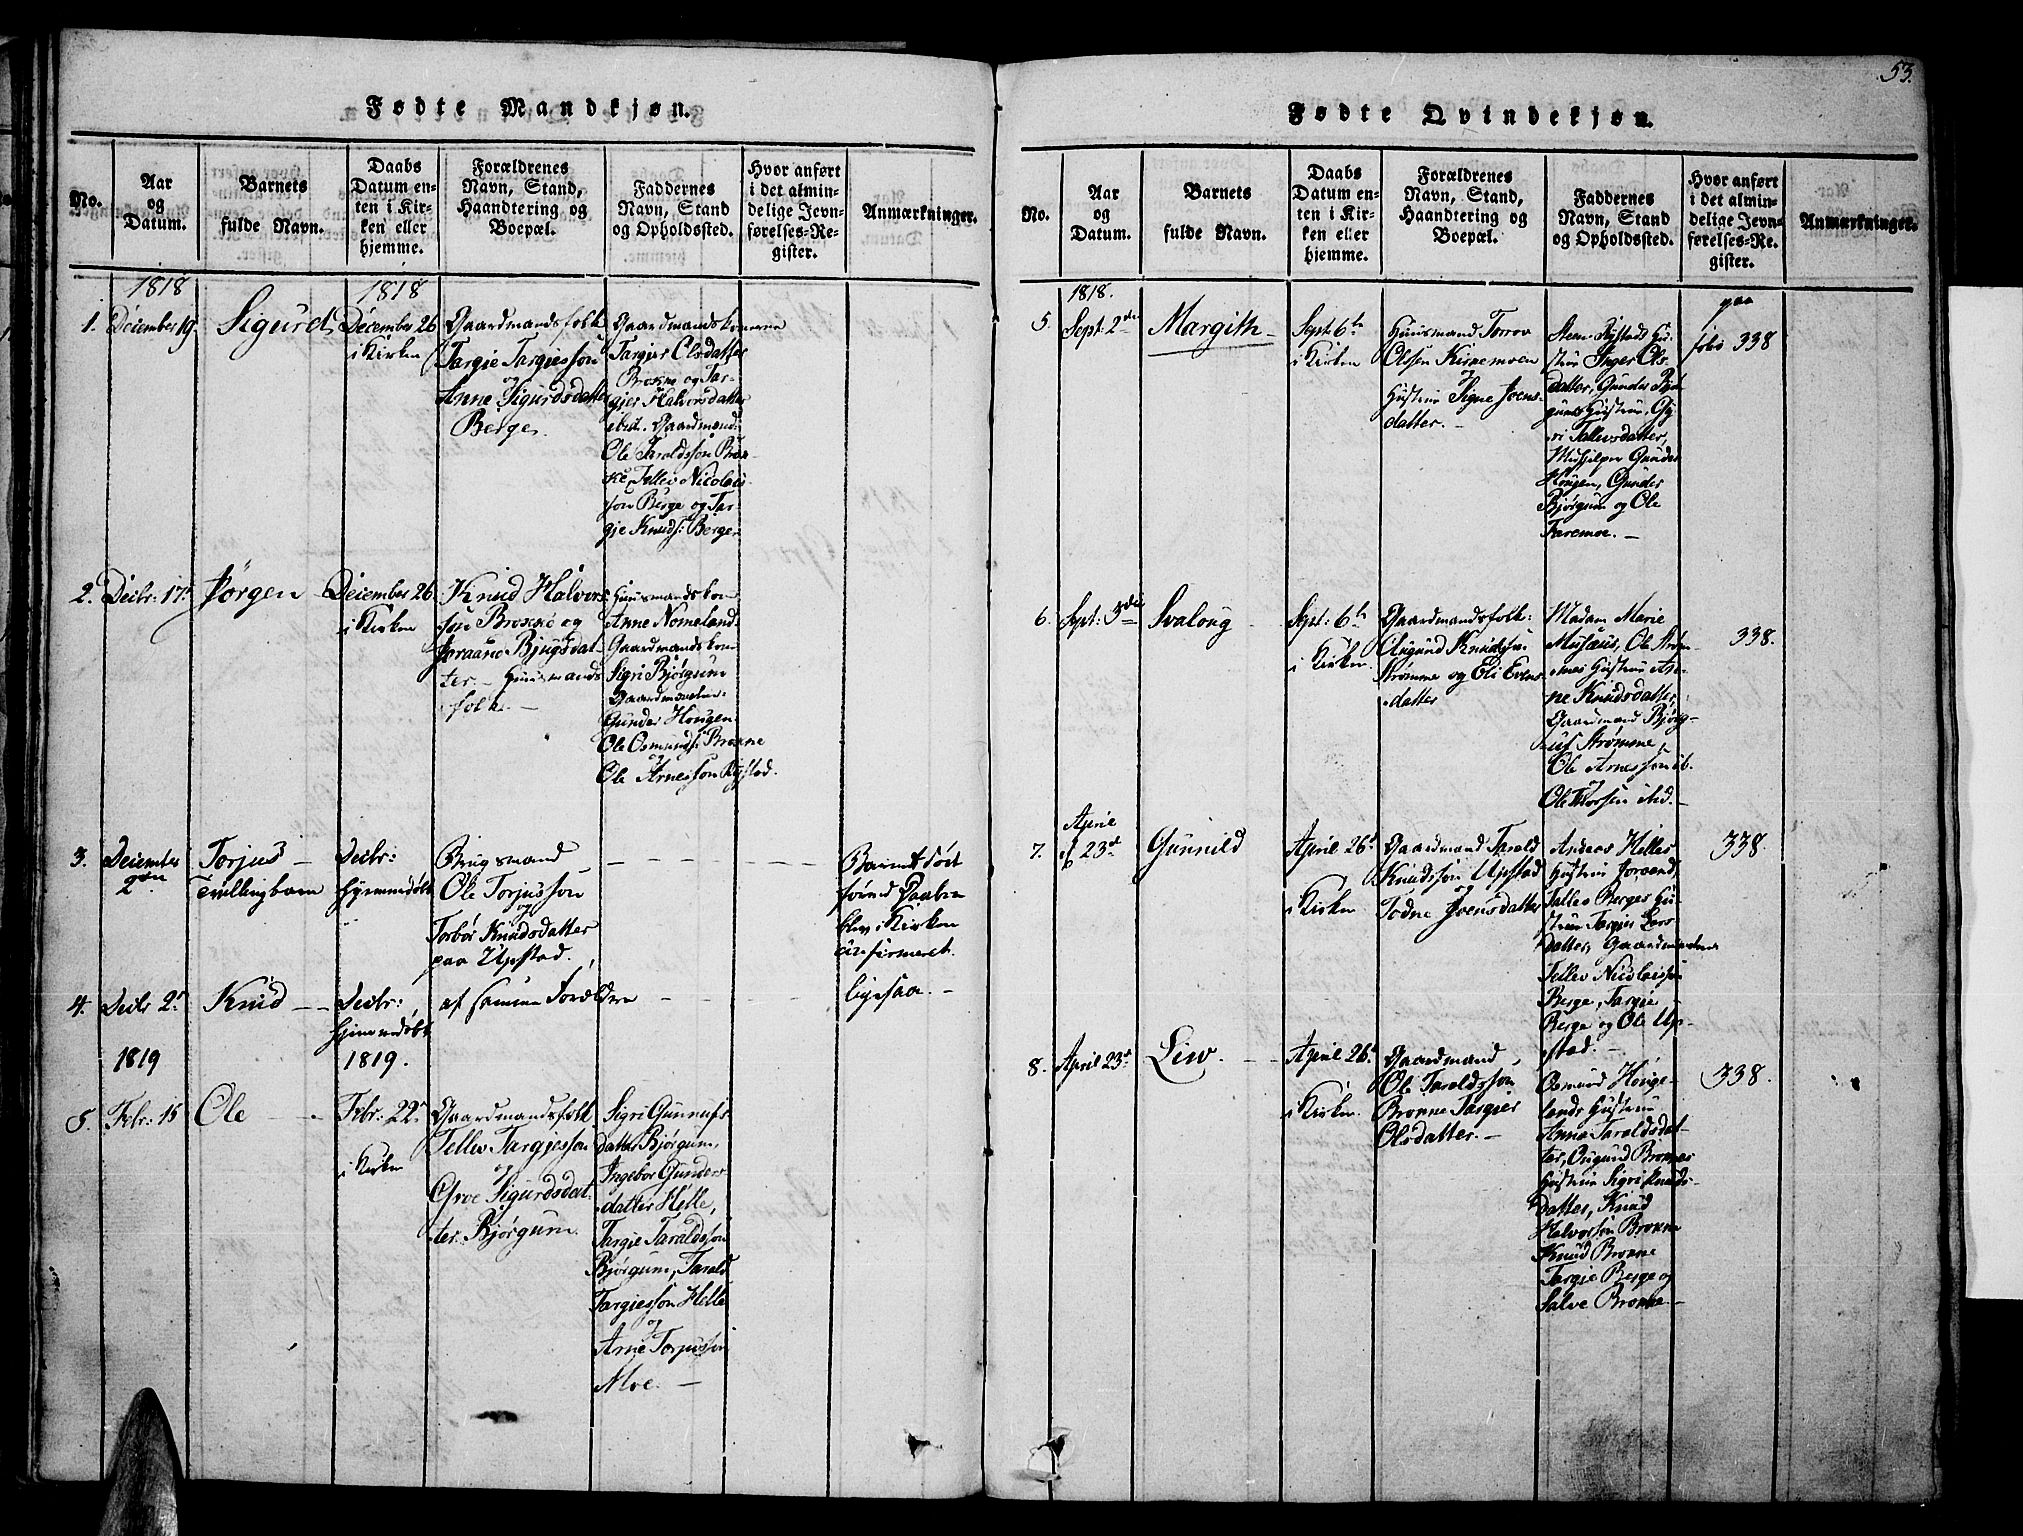 Fødte Mandkjøn.
No.
Aar
og
Datum.
Barnets
fulde Navn.
Daabs
Datum en-
ten i Kir-
ken eller
hjemme.
Forældrenes
Navn, Stand,
Haandtering og
Boepæl.
Faddernes
Navn, Stand
og Opholdssted.
Hvor anført
i det almin-
delige Jevn-
førelses-Re-
gister.
Anmærkninger.
1818
1818
1.
December 19
Sigurd
December 26
i Kirken
Gaardmandsfolk
Targie Targiesson
og
Anne Sigurdsdatter
Berge.
Gaardmandskonerne
Targier Olsdatter
Brokne og Tar-
gjer Halvorsdatter
ibid. Gaardmænd:
Ole Taraldsson Bro-
ke, Tellev Nicolai-
son Berge og Tar-
gje Knuds: Berge
2.
Decbr: 17
Jørgen
December 26
i Kirken
Knud Halvors
søn Brokne og
Joraand Bjugsdat-
ter. Huusmands
folk. –
Huusmandskon
Anne Nomeland
Gaardmandskon
Sigri Bjørgum
Gaardmændene
Gunder Hougen
Ole Osmunds: Brokne
og
Ole Arnesson Rystad.
3.
December
2den
Torjus –
Tvillingbarn
Decbr:
hjemmedøbt
Brugsmand
Ole Torjusson
og
Torbor Knudsdatter
paa Upstad.
Barnet død
førend Daaben
blev i Kirken
confirmeret.
4.
Decbr 2
Knud –
Decbr:
hjemmedøbt
af samme Forældre
ligesaa. –
1819
1819.
5.
Febr: 15
Ole
Febr: 22
i Kirken
Gaardmandsfolk
Tellev Targiesson
og
Groe Sigurdsdat-
ter Bjørgum
Sigri Gunnufs
datter Bjørgum,
Ingebor Gunders
datter Helle,
Targie Taraldsson
Bjørgum, Tarald
Targiesson Helle
og
Arne Torjusson
Moe. –
53.
Fødte Qvindekjøn.
No.
Aar
og
Datum.
Barnets
fulde Navn.
Daabs
Datum en-
ten i Kir-
ken eller
hjemme.
Forældrenes
Navn, Stand,
Haandtering og
Boepæl.
Faddernes
Navn, Stand
og Opholdssted.
Hvor anført
i det almin-
delige Jevn-
førelses-Re-
gister.
Anmærkninger.
1818.
5.
Sept: 2den
Margith –
Sept: 6te
i Kirken
Huusmand Torrov
Olsen Kirnemoen
og
Hustrue Signe Joens-
datter. –
Sten Rystads Hu-
strue Inger Ols-
datter, Gunder Bjør
gums Hustrue Gy-
ri Tallevsdatter,
Medhjelper Gunder
Hougen, Gunder
Bjørgum og Ole
Faremoe. –
paa
folio 338
6.
Sept: 3die
Svalaug
Sept: 6te
i Kirken
Gaardmandsfolk:
Augund Knudsson
Strømme og Eli Evens-
datter
Madam Marie
Musæus, Ole Strøm-
mes Hustrue An-
ne Knudsdatter,
Gaardmand Bjørg-
uf Strømme,
Ole Arnesson ib.
og
Ole Thorsen ibid. –
338.
7.
April
23de
Gunnild
April 26
i Kirken
Gaardmand Tarald
Knudsson Upstad
og
Todne Joensdatter
Anders Helles
Hustrue Joraand,
Tallev Berges Hu-
strue Targier Lars
datter, Gaardmændene
Tellev Nicolaisson
Berge, Targie
Berge og Ole Up-
stad. –
338.
8.
April 23de
Liw.
April 26
i Kirken.
Gaardmand
Ole Taraldsson
Brokne Targier
Olsdatter. –
Osmund Houge-
lands Hustrue
Anne Taraldsdat-
ter, Ougund Broknes
Hustrue Sigri Knuds-
datter, Knud
Halvorsøn Brokne
Knud Brokne
Targie Berge og
Salve Brokne –
338.